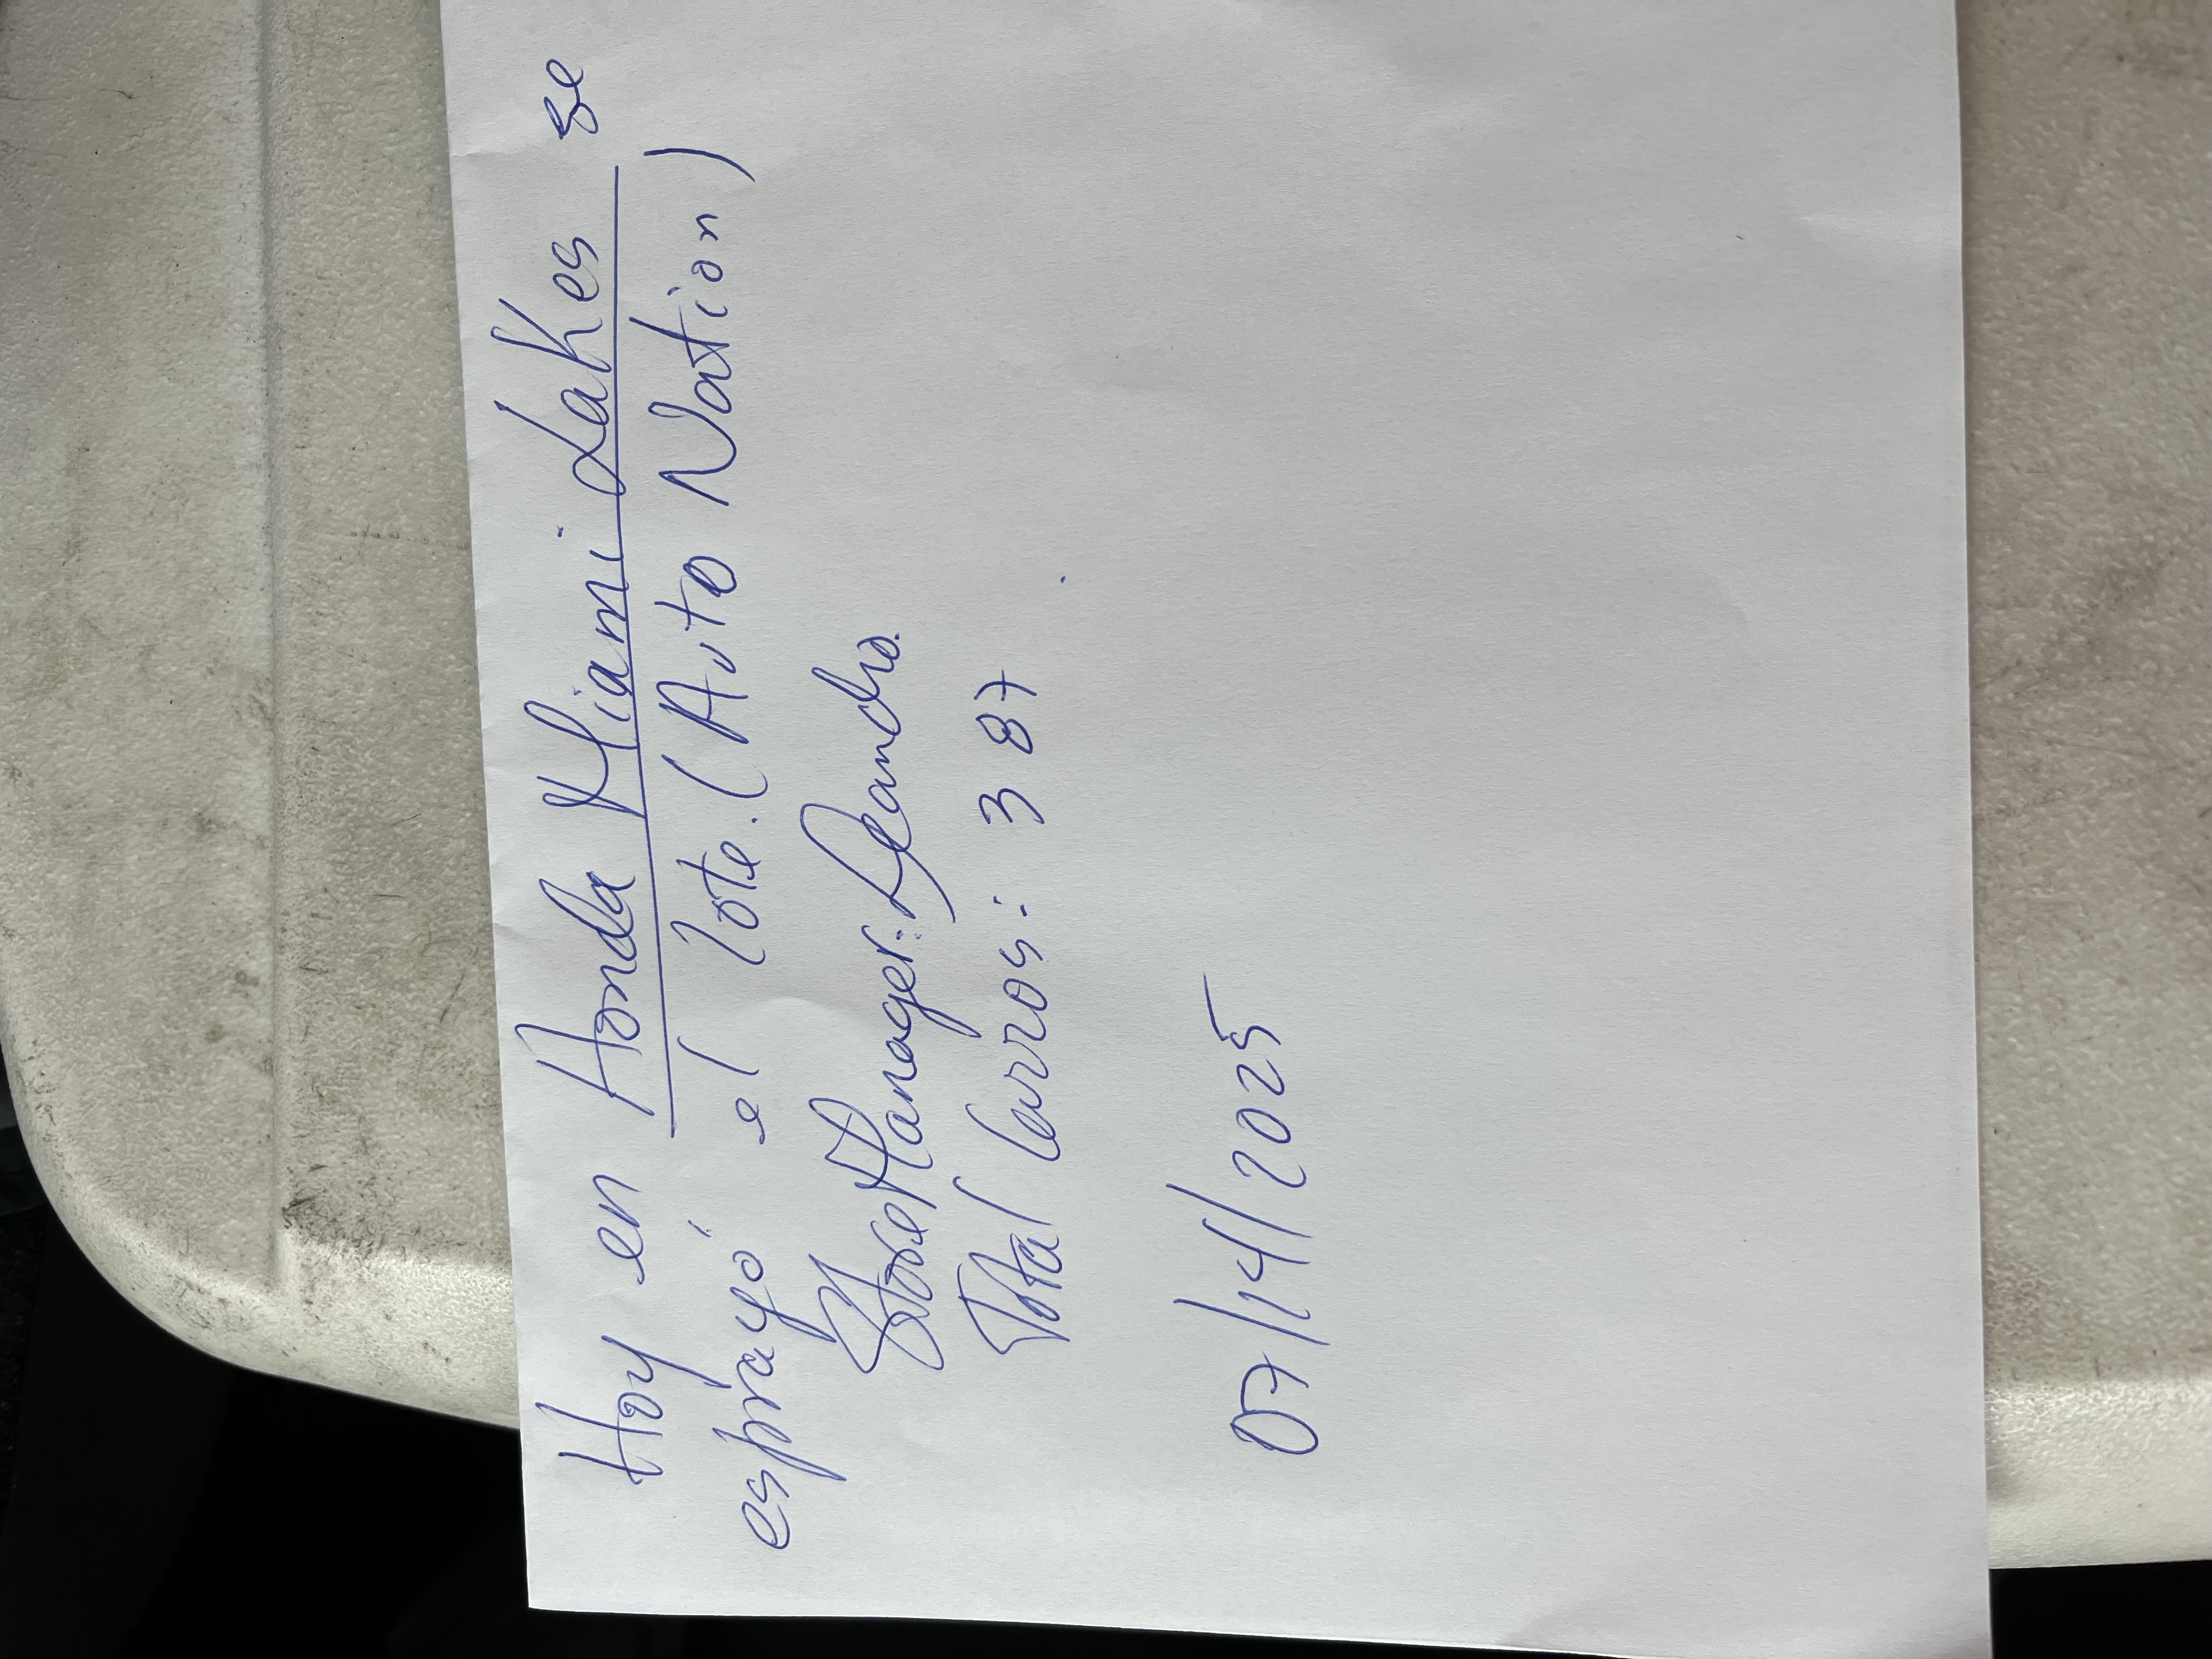 Hoy en Honda Miami Lakes se
esprayó el lote. (Auto Nation)
Store Manager: Leandro.
Total Carros: 387
07/14/2025